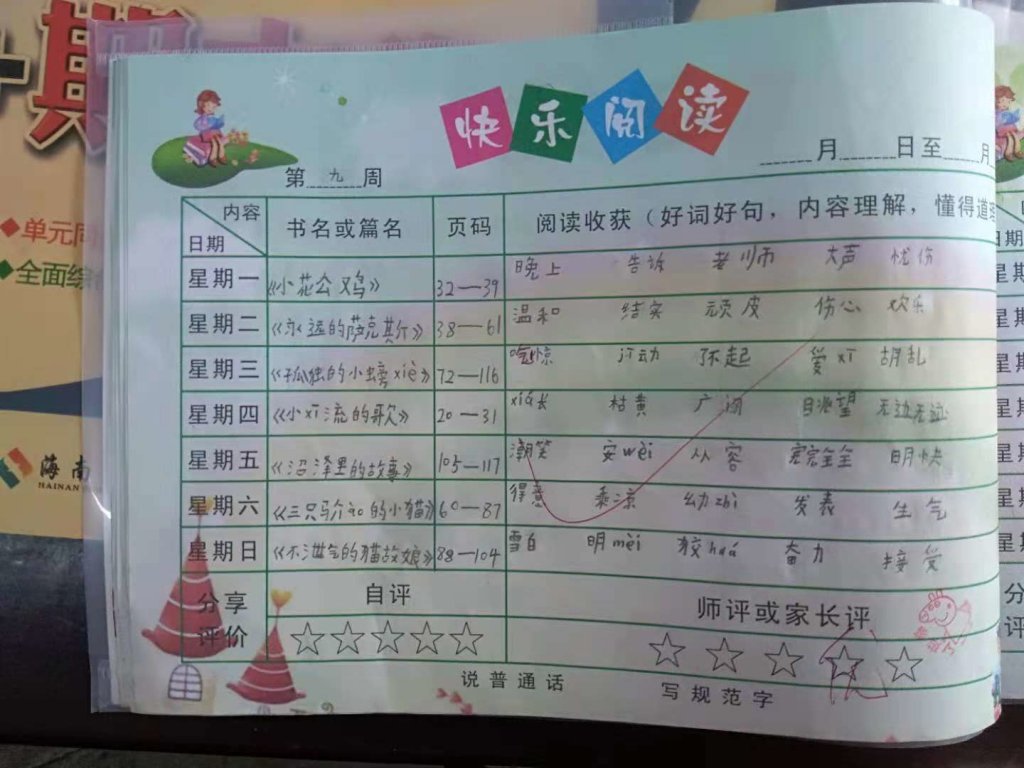 期
单元同
全面综合
海南
HAINAN
快乐阅读
第九周
月 日至 月
内容
日期
书名或篇名 页码 阅读收获（好词好句，内容理解，懂得道理
星期一 《小花公鸡》 32—39 晚上 告诉 老师 大声 忧伤
星期二 《永远的萨克斯》 38—61 温和 结实 顽皮 伤心 欢乐
星期三 《孤独的小螃xiè》 72—116 吃惊 订动 了不起 爱xī 胡乱
星期四 《小xī流的歌》 20—31 xiá长 枯黄 广阔 目兆望 无边无迹
星期五 《沼泽里的故事》 105—117 潮笑 安wèi 从容 完完全全 明快
星期六 《三只骄ào的小猫》 60—87 得意 乘凉 幼zhì 发表 生气
星期日 《不泄气的猫姑娘》 88—104 雪白 明mèi 狡huá 奋力 接受
分享
评价
自评
师评或家长评
说普通话 写规范字